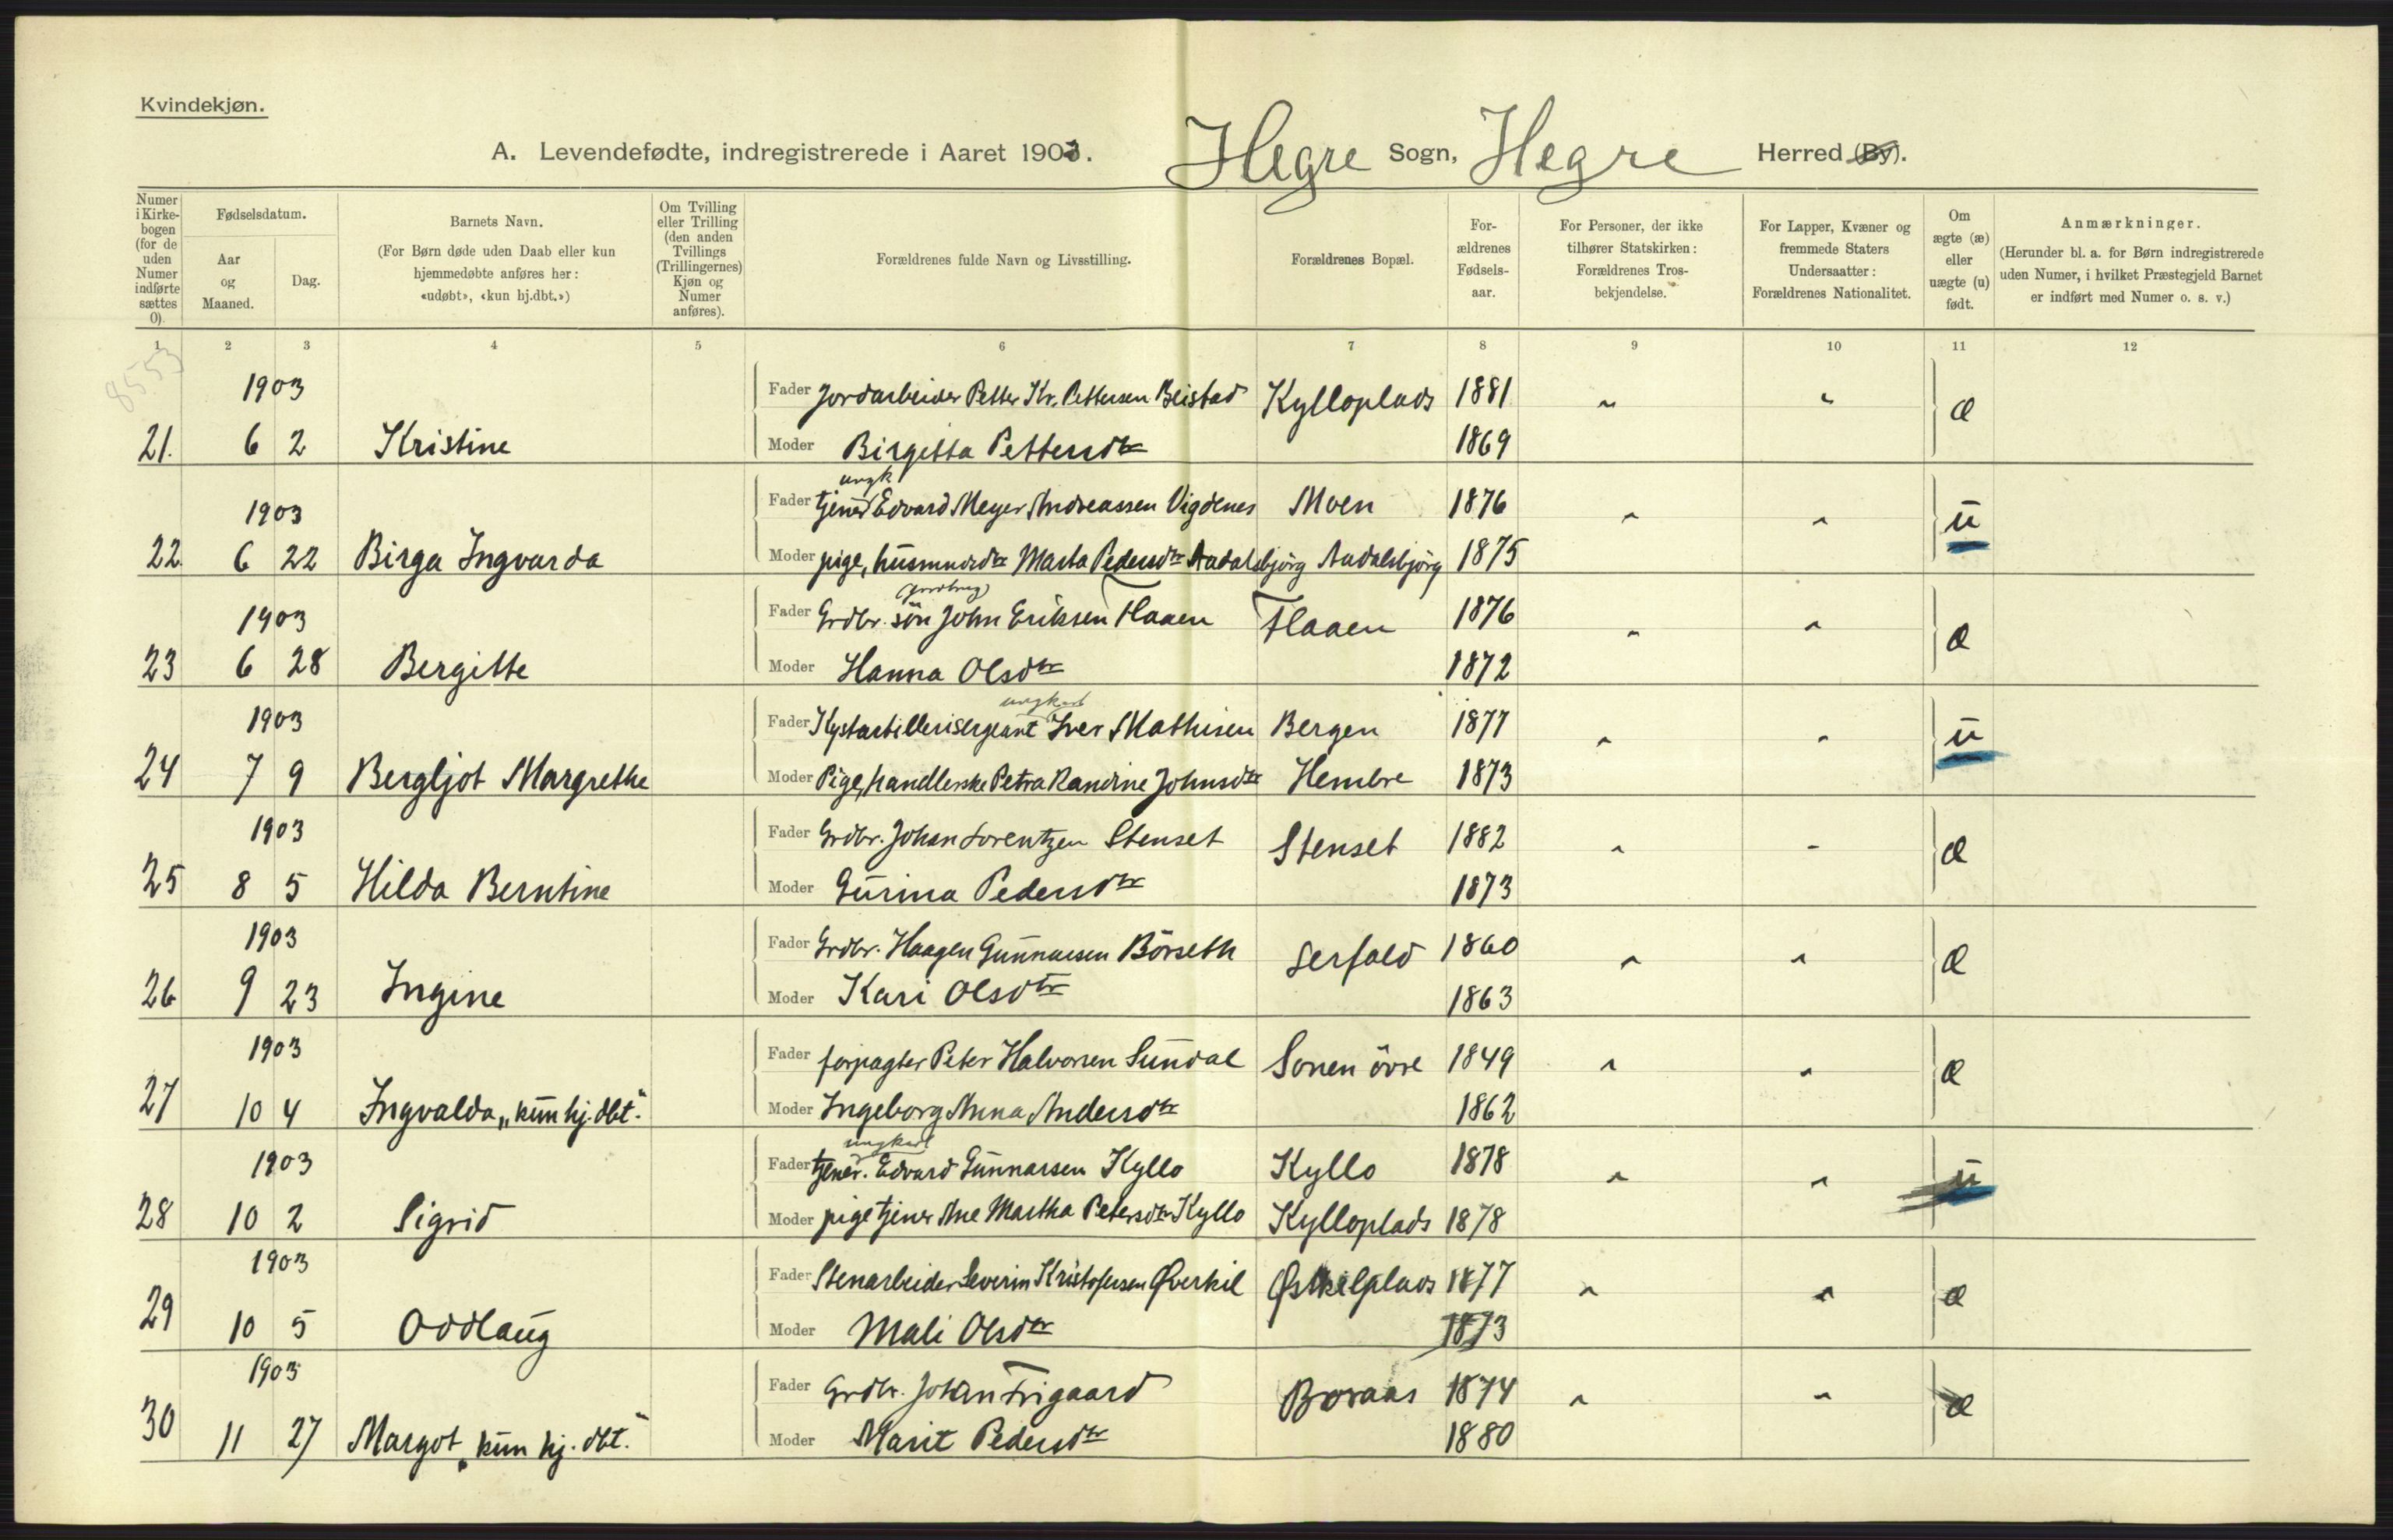 Kvindekjøn.
A. Levendefødte, indregistrerede i Aaret 1903. Hegre Sogn, Hegre Herred (By).
Numer i Kirkebogen (for de uden Numer indførte sættes 0).
Fødselsdatum.
Aar og Maaned.
Dag.
Barnets Navn.
(For Børn døde uden Daab eller kun hjemmedøbte anføres her: «udøbt», «kun hj.dbt.»)
Om Tvilling eller Trilling (den anden Tvillings (Trillingernes) Kjøn og Numer anføres).
Forældrenes fulde Navn og Livsstilling.
Forældrenes Bopæl.
Forældrenes Fødselsaar.
For Personer, der ikke tilhører Statskirken: Forældrenes Trosbekjendelse.
For Lapper, Kvæner og fremmede Staters Undersaatter: Forældrenes Nationalitet.
Om ægte (æ) eller uægte (u) født.
Anmærkninger.
(Herunder bl. a. for Børn indregistrerede uden Numer, i hvilket Præstegjeld Barnet er indført med Numer o. s. v.)
1 2 3 4 5 6 7 8 9 10 11 12
8553
1903 Fader Jordarbeider Petter Kr. Pettersen Beistad Kylloplads 1881 " " æ
21. 6 2 Kristine Moder Birgitta Pettersdtr 1869
ungk
1903 Fader tjener Edvard Meyer Andreassen Vigdenes Moen 1876 " " u
22. 6 22 Birga Ingvarda Moder pige, husmandsdtr Marta Pedersdtr Aadalsbjörg Aadalsbjörg 1875
1903 Fader Grdbr. sön John Eriksen Flaaen Flaaen 1876 " " æ
23 6 28 Bergitte Moder Hanna Olsdtr 1872
ungkarl
1903 Fader Kystartillerisergeant Iver Mathisen Bergen 1877 " " u
24 7 9 Bergljot Margrethe Moder Pige, handlerske Petra Randine Johnsdtr Hembre 1873
1903 Fader Grdbr. Johan Lorentzen Stenset Stenset 1882 " " æ
25 8 5 Hilda Berntine Moder Gurina Pedersdtr 1873
1903 Fader Grdbr. Haagen Gunnarsen Börseth Lerfald 1860 " " æ
26 9 23 Ingine Moder Kari Olsdtr 1863
1903 Fader forpagter Peter Halvorsen Sundal Sonen övre 1849 " " æ
27 10 4 Ingvalda „kun hj. dbt." Moder Ingeborg Anna Andersdtr 1862
ungkarl
1903 Fader tjener. Edvard Gunnarsen Kyllo Kyllo 1878 " " u
28 10 2 Sigrid Moder pige tjener Ane Martha Petersdtr Kyllo Kylloplads 1878
1903 Fader Stenarbeider Severin Kristofersen Øverkil Østkilplads 1877 " " æ
29 10 5 Oddlaug Moder Mali Olsdtr 1873
1903 Fader Grdbr. Johan Trigaard Boraas 1874 " " æ
30 11 27 Margot „kun hj. dbt." Moder Marit Pedersdtr 1880